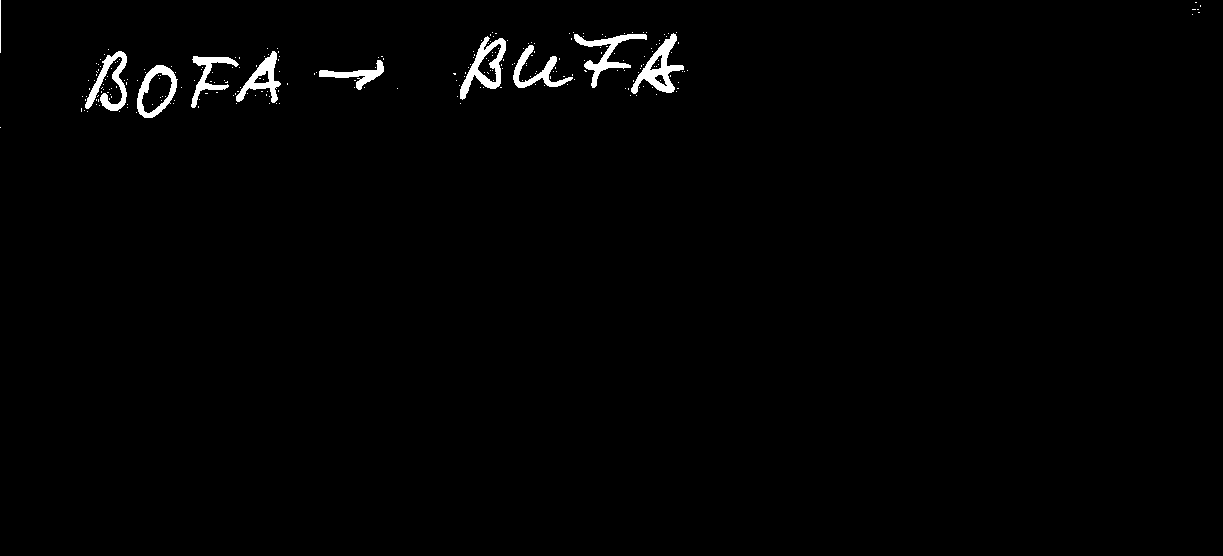 BOFA → BUFA